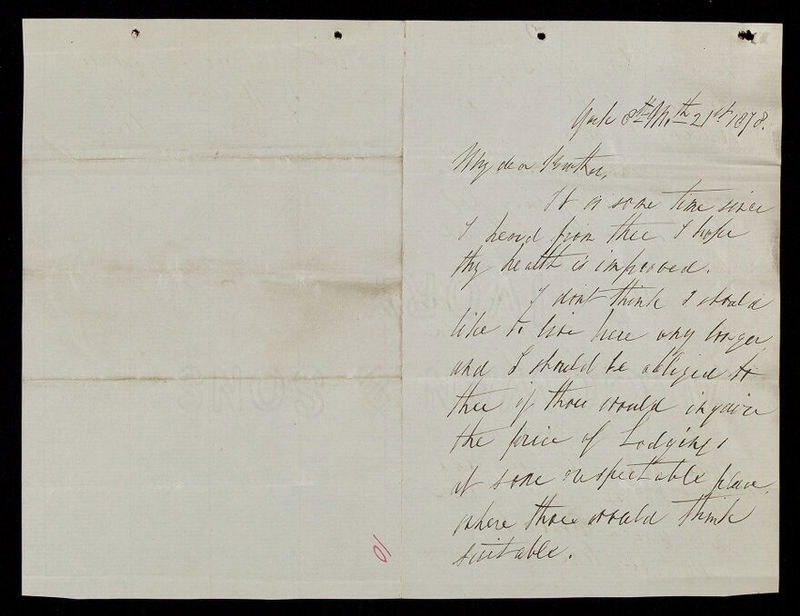 York 8th Mo.th 21st 1878.
My dear Brother,
It is some time since
I heard from thee I hope
thy health is improved.
I dont think I should
like to live here any longer
and I should be obliged to
thee if thou would inquire
the price of Lodgings
at some respectable place,
where thou would think
suitable.
10